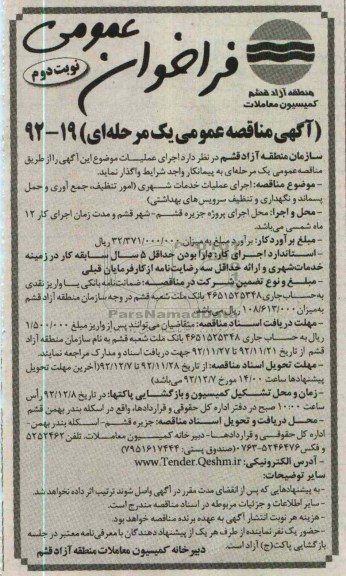 فراخوان عمومی
نوبت دوم
منطقه آزاد قشم
کمیسیون معاملات
(آگهی مناقصه عمومی یک مرحله‌ای) ۱۹-۹۲
سازمان منطقه آزاد قشم در نظر دارد اجرای عملیات موضوع این آگهی را از طریق
مناقصه عمومی یک مرحله‌ای به پیمانکار واجد شرایط واگذار نماید.
- موضوع مناقصه: اجرای عملیات خدمات شهری (امور تنظیف، جمع آوری و حمل
پسماند و نگهداری و تنظیف سرویس‌های بهداشتی)
- محل و اجرا: محل اجرای پروژه جزیره قشم- شهر قشم و مدت زمان اجرای کار ۱۲
ماه شمسی می‌باشد.
- مبلغ برآورد کار: برآورد مبلغ به میزان ۳۲/۳۷۱/۰۰۰/۰۰۰ ریال
- استاندارد اجرای کار: دارا بودن حداقل ۵ سال سابقه کار در زمینه
خدمات شهری و ارائه حداقل سه رضایت‌نامه از کارفرمایان قبلی
- مبلغ و نوع تضمین شرکت در مناقصه: ضمانت‌نامه بانکی یا واریز نقدی
به حساب جاری ۴۶۵۱۵۲۵۳۴۸ بانک ملت شعبه قشم در وجه سازمان منطقه آزاد قشم
به میزان ۱۰۸/۶۱۳/۰۰۰ ریال می‌باشد.
- مهلت دریافت اسناد مناقصه: متقاضیان می‌توانند پس از واریز مبلغ ۱/۵۰۰/۰۰۰
ریال به حساب جاری ۴۶۵۱۵۲۵۳۴۸ بانک ملت شعبه قشم به نام سازمان منطقه آزاد
قشم از تاریخ ۹۲/۱۱/۲۱ تا ۹۲/۱۱/۲۷ جهت دریافت اسناد و مدارک مراجعه نمایند.
- مهلت تحویل اسناد مناقصه: از تاریخ ۹۲/۱۱/۲۸ تا ۹۲/۱۲/۷ (آخرین مهلت تحویل
پیشنهادها ساعت ۱۴/۰۰ مورخ ۹۲/۱۲/۷ می‌باشد)
- زمان و محل تشکیل کمیسیون و بازگشایی پاکتها: در تاریخ ۹۲/۱۲/۸ رأس
ساعت ۱۰/۰۰ صبح در دفتر اداره کل حقوقی و قراردادها، واقع در اسکله بندر بهمن قشم
- محل دریافت و تحویل اسناد مناقصه: جزیره قشم- اسکله بندر بهمن-
اداره کل حقوقی و قراردادها- دبیرخانه کمیسیون معاملات، تلفن ۵۲۵۲۴۶۲
و فکس ۵۲۴۶۴۷۶-۰۷۶۳ (صندوق پستی: ۷۹۵۱۶۱۷۴۴۴)
- آدرس الکترونیکی: www.Tender.Qeshm.ir
سایر توضیحات:
- به پیشنهادهایی که پس از انقضای مدت مقرر در آگهی واصل شوند ترتیب اثر داده نخواهد شد.
- سایر اطلاعات و جزئیات مربوطه در اسناد مناقصه مندرج است.
- هزینه هر نوبت انتشار آگهی به عهده برنده مناقصه خواهد بود.
- حضور یک نفر نماینده از طرف هر یک از پیشنهاد دهندگان با معرفی‌نامه معتبر در جلسه
بازگشایی پاکت(ج) آزاد است.
دبیرخانه کمیسیون معاملات منطقه آزاد قشم